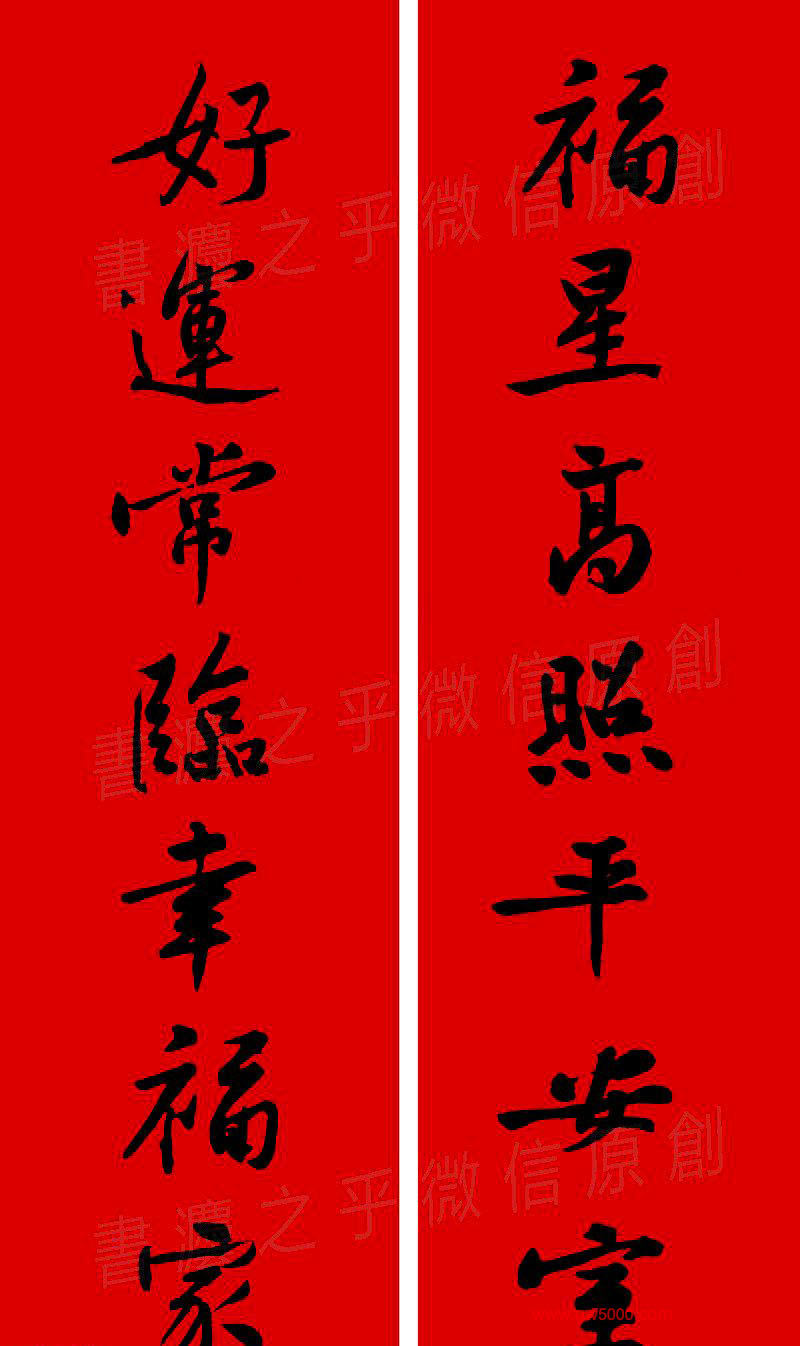 福星高照平安室
好運常臨幸福家
書瀘之乎微信原創
書瀘之乎微信原創
書瀘之乎微信原創